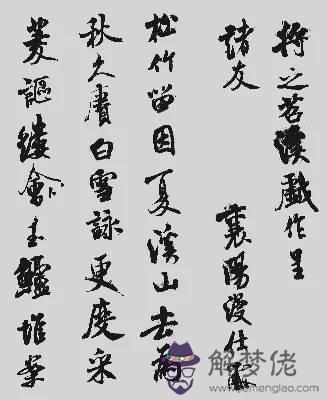 將之苕溪戲作呈
諸友 襄陽漫仕黻
松竹留因夏溪山去為
秋久賡白雪詠更度采
菱謳縷會玉鱸堆案
解梦佬